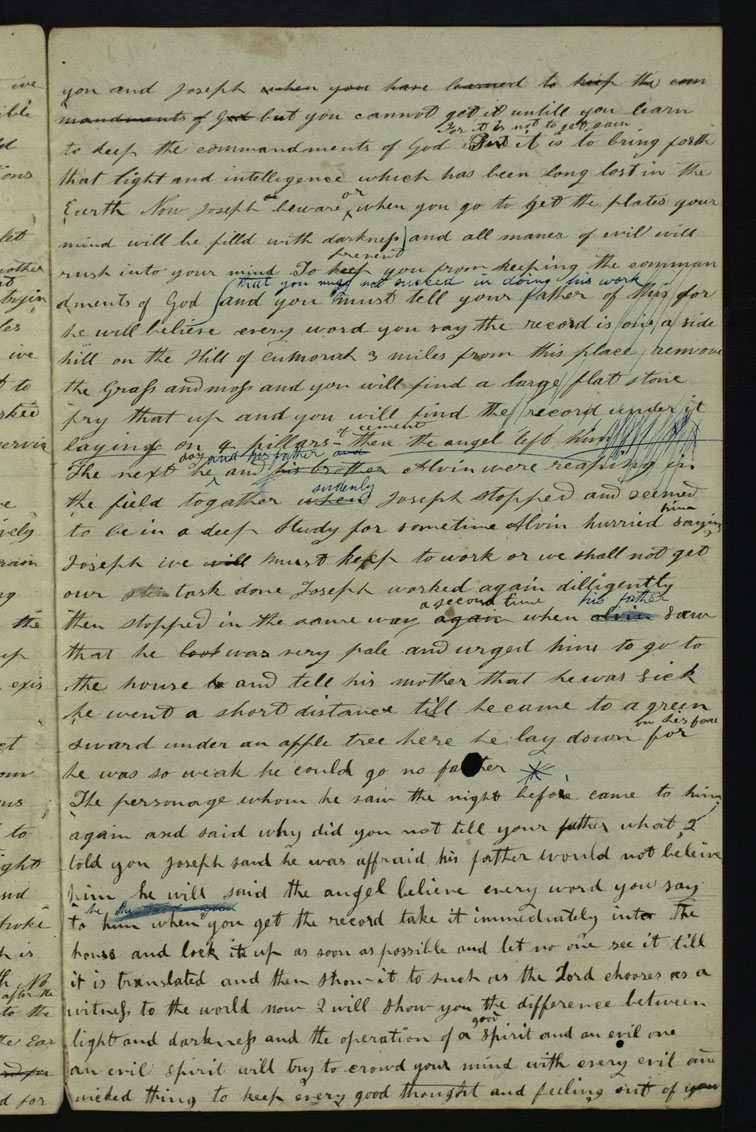 you and Joseph when you have learned to keep the com
mandments of God but you cannot get it untill you learn
for it is not to get gain
to keep the commandments of God But it is to bring forth
that light and intelligence which has been long lost in the
Earth Now Joseph beware or when you go to get the plates your
mind will be filld with darkness and all maner of evil will
rush into your mind To keep prevent you from keeping the comman
that you may not succed in doing his work
dments of God and you must tell your father of this for
he will believe every word you say the record is on a side
hill on the Hill of Cumorah 3 miles from this place remove
the Grass and moss and you will find a large flat stone
pry that up and you will find the record under it
laying on 4 pillars of cement then the angel left him
The next day he and his father and his brother Alvin were reaping in
the field togather when suddenly Joseph stopped and seemed
to be in a deep Study for sometime Alvin hurried him saying
Joseph we will must keep to work or we shall not get
our task done Joseph worked again dilligently
then stopped in the same way again a second time when alvin his father saw
that he look was very pale and urged him to go to
the house and tell his mother that he was sick
he went a short distance till he came to a green
sward under an apple tree here he lay down on his face for
he was so weak he could go no farther
The personage whom he saw the night before came to him
again and said why did you not tell your father what I
told you Joseph said he was affraid his father would not beleive
him he will said the angel believe every word you say
to him when you get the record take it immediately into the
house and lock it up as soon as possible and let no one see it till
it is translated and then show it to such as the Lord chooses as a
witness to the world now I will show you the difference between
light and darkness and the operation of a good spirit and an evil one
an evil spirit will try to crowd your mind with every evil and
wicked thing to keep every good thought and feeling out of your